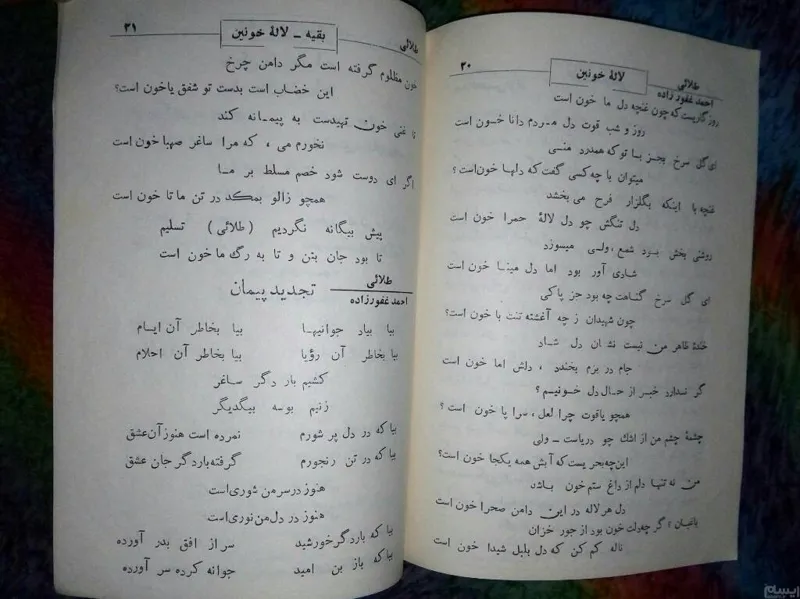 ۳۰
لالهٔ خونین
طلائی
احمد غفورزاده
روزگاریست که چون غنچه دل ما خون است
روز و شب قوت دل مردم دانا خون است
ای گل سرخ بجز با تو که همدرد منی
میتوان با چه کسی گفت که دلها خون است؟
غنچه با اینکه بگلزار فرح می بخشد
دل تنگش چو دل لالهٔ حمرا خون است
روشنی بخش بود شمع، ولی میسوزد
شادی آور بود اما دل مینا خون است
ای گل سرخ گناهت چه بود جز پاکی
چون شهیدان ز چه آغشته تنت با خون است؟
خندهٔ ظاهر من نیست نشان دل شاد
جام در بزم بخندد، دلش اما خون است
گر ندارد خبر از حال دل خونینم؟
همچو یاقوت چرا لعل، سرا پا خون است؟
چشمهٔ چشم من از اشك چو دریاست - ولی
این چه بحریست که آبش همه یکجا خون است؟
من نه تنها دلم از داغ ستم خون باشد
دل هر لاله در این دامن صحرا خون است
باغبان؛ گر چه دلت خون بود از جور خزان
ناله کم کن که دل بلبل شیدا خون است
طلائی
بقیه - لالهٔ خونین
۳۱
خون مظلوم گرفته است مگر دامن چرخ
این خضاب است بدست تو شفق یا خون است؟
تا غنی خون تهیدست به پیمانه کند
نخورم می، که مرا ساغر صهبا خون است
اگر ای دوست شود خصم مسلط بر ما
همچو زالو بمکد در تن ما تا خون است
پیش بیگانه نگردیم (طلائی) تسلیم
تا بود جان بتن و تا به رگ ما خون است
طلائی
احمد غفورزاده
تجدید پیمان
بیا بیاد جوانیها بیا بخاطر آن ایام
بیا بخاطر آن رؤیا بیا بخاطر آن احلام
کشیم بار دگر ساغر
زنیم بوسه بیگدیگر
بیا که در دل پر شورم نمرده است هنوز آن عشق
بیا که در تن رنجورم گرفته بار دگر جان عشق
هنوز در سر من شوری است
هنوز در دل من نوری است
بیا که بار دگر خورشید سر از افق بدر آورده
بیا که باز بن امید جوانه کرده سر آورده
ایسام